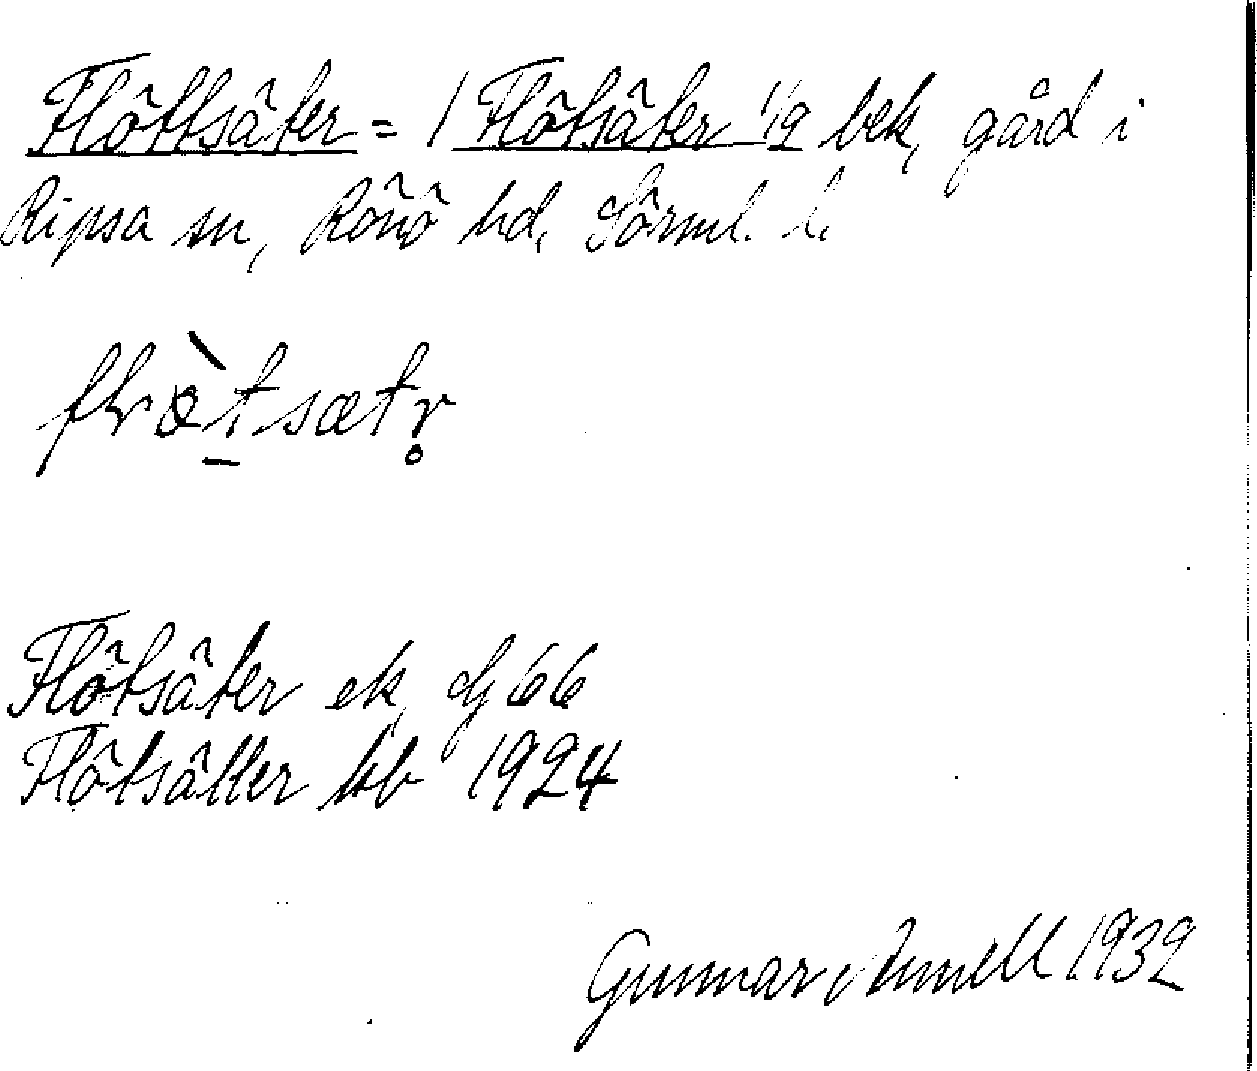 Flöttsäter = / Flötsäter 1/9 bek, gård i
Ripsa sn, Rönö hd, Sörml. l.
flvæ̀tsætr̥
Flötsäter ek Gj 66
Flötsätter kb 1924
Gunnar Annell 1932